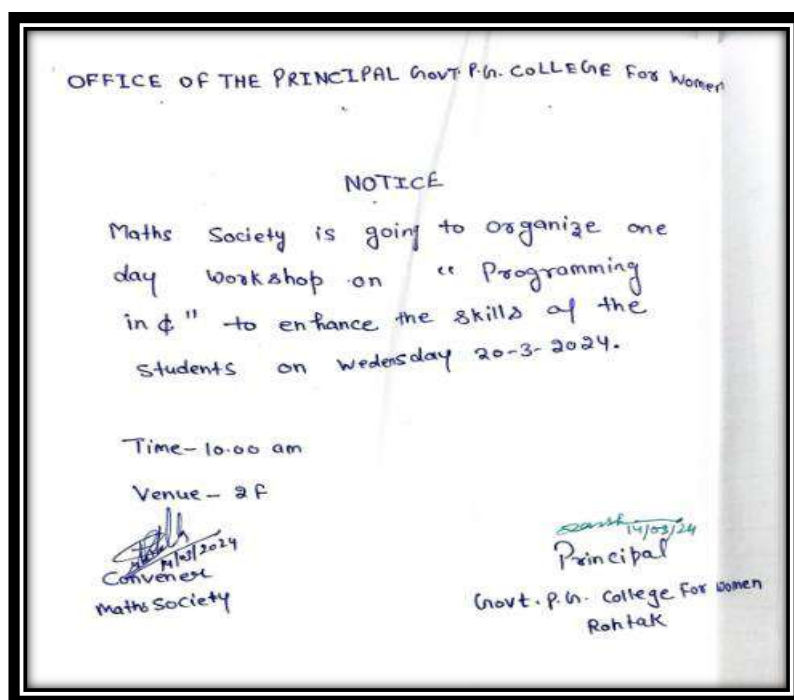 OFFICE OF THE PRINCIPAL GOVT. P.G. COLLEGE For Women
NOTICE
Maths Society is going to organize one
day workshop on "Programming
in ¢" to enhance the skills of the
students on Wedensday 20-3-2024.
Time- 10.00 am
Venue- 2F
14/03/2024
Convener
Maths Society
14/03/24
Principal
Govt. P.G. College For Women
Rohtak